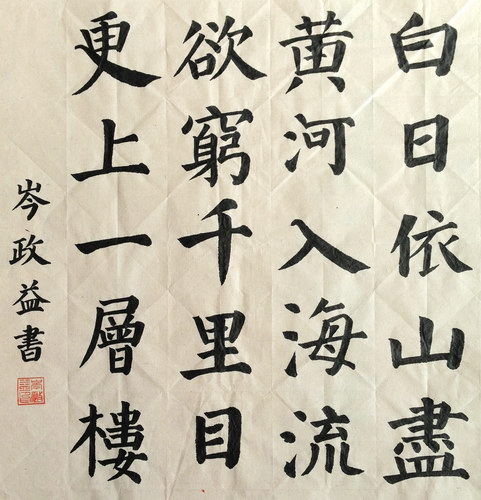 白日依山盡
黄河入海流
欲窮千里目
更上一層樓
岑政益書